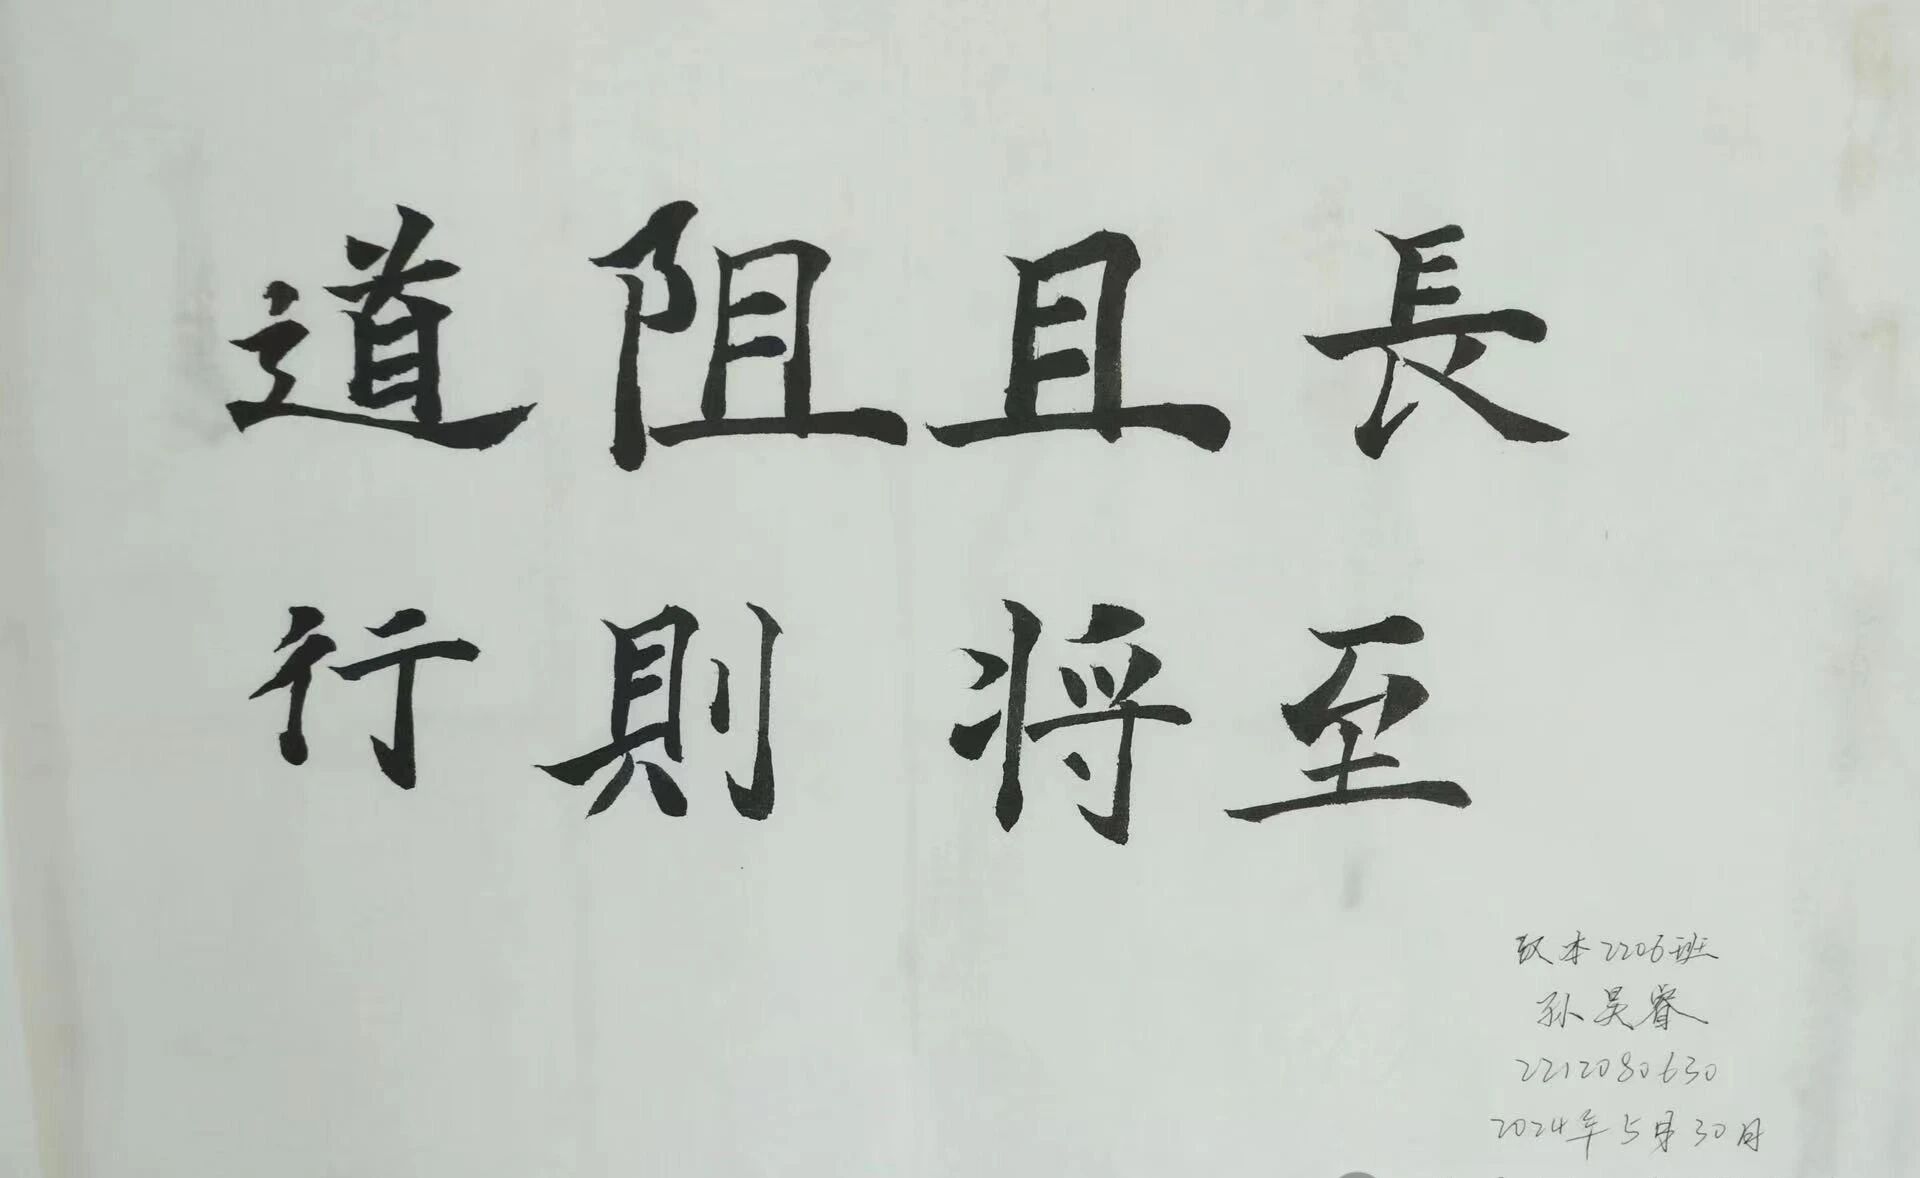 道阻且長
行則将至
汉本2206班
孙昊睿
2212080630
2024年5月30日